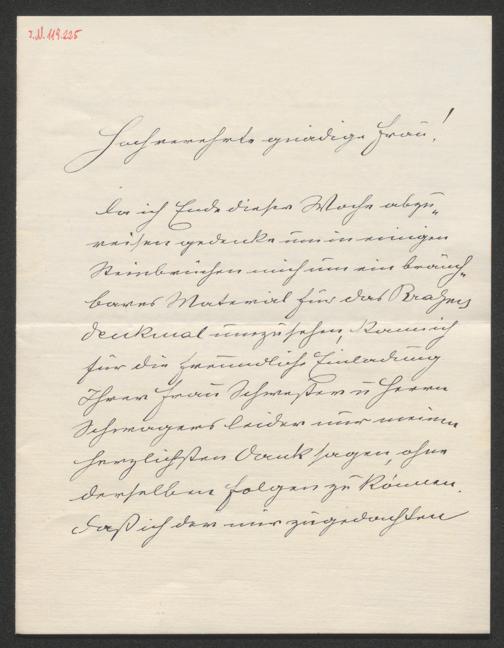 I.N. 119.225
Hochverehrte gnädige Frau!
Da ich Ende dieser Woche abzu-
reisen gedenke um in einigen
Steinbrüchen mich um ein brauch-
bares Material für das Brahms
denkmal umzusehen, kann ich
für die freundliche Einladung
Ihrer Frau Schwester u Herrn
Schwagers leider nur meinen
herzlichsten Dank sagen, ohne
derselben folgen zu können.
Daß ich der mir zugedachten